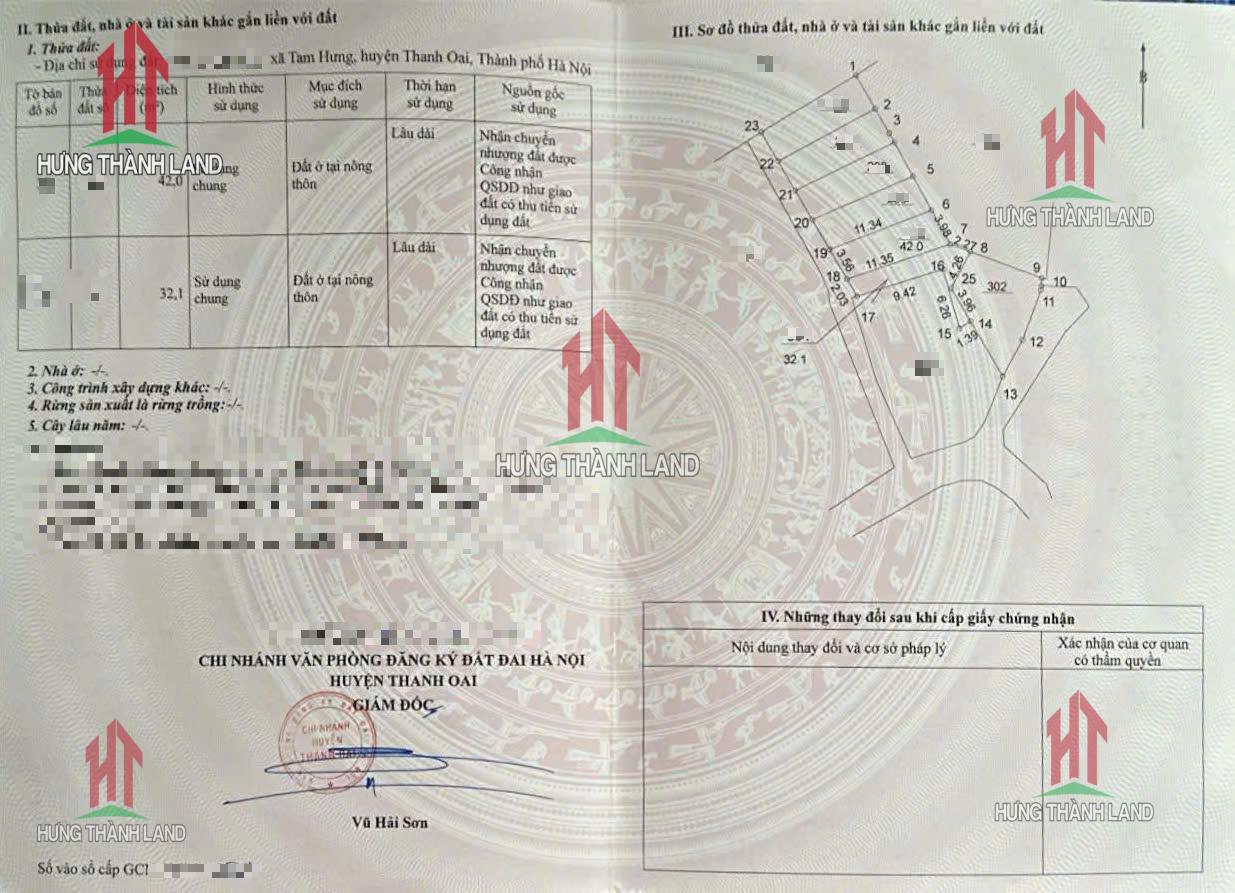 II. Thửa đất, nhà ở và tài sản khác gắn liền với đất
1. Thửa đất:
- Địa chỉ sử dụng đất: xã Tam Hưng, huyện Thanh Oai, Thành phố Hà Nội
Tờ bản đồ số | Thửa đất số | Diện tích (m²) | Hình thức sử dụng | Mục đích sử dụng | Thời hạn sử dụng | Nguồn gốc sử dụng
42,0 | chung | Đất ở tại nông thôn | Lâu dài | Nhận chuyển nhượng đất được Công nhận QSDĐ như giao đất có thu tiền sử dụng đất
32,1 | Sử dụng chung | Đất ở tại nông thôn | Lâu dài | Nhận chuyển nhượng đất được Công nhận QSDĐ như giao đất có thu tiền sử dụng đất
2. Nhà ở: -/-.
3. Công trình xây dựng khác: -/-.
4. Rừng sản xuất là rừng trồng:-/-.
5. Cây lâu năm: -/-.
CHI NHÁNH VĂN PHÒNG ĐĂNG KÝ ĐẤT ĐAI HÀ NỘI
HUYỆN THANH OAI
GIÁM ĐỐC
CHI NHÁNH
HUYỆN
THANH OAI
Vũ Hải Sơn
Số vào sổ cấp GC
III. Sơ đồ thửa đất, nhà ở và tài sản khác gắn liền với đất
B
1
2
23
3
4
22
5
21
6
20
11.34
3.98
7
2.27
8
19
42.0
3.56
11.35
16
4.26
9
18
25
10
2.03
9.42
302
11
17
6.26
3.96
14
15
1.39
12
32.1
13
IV. Những thay đổi sau khi cấp giấy chứng nhận
Nội dung thay đổi và cơ sở pháp lý | Xác nhận của cơ quan có thẩm quyền
HT
HƯNG THÀNH LAND
HT
HƯNG THÀNH LAND
HT
HƯNG THÀNH LAND
HT
HƯNG THÀNH LAND
HT
HƯNG THÀNH LAND